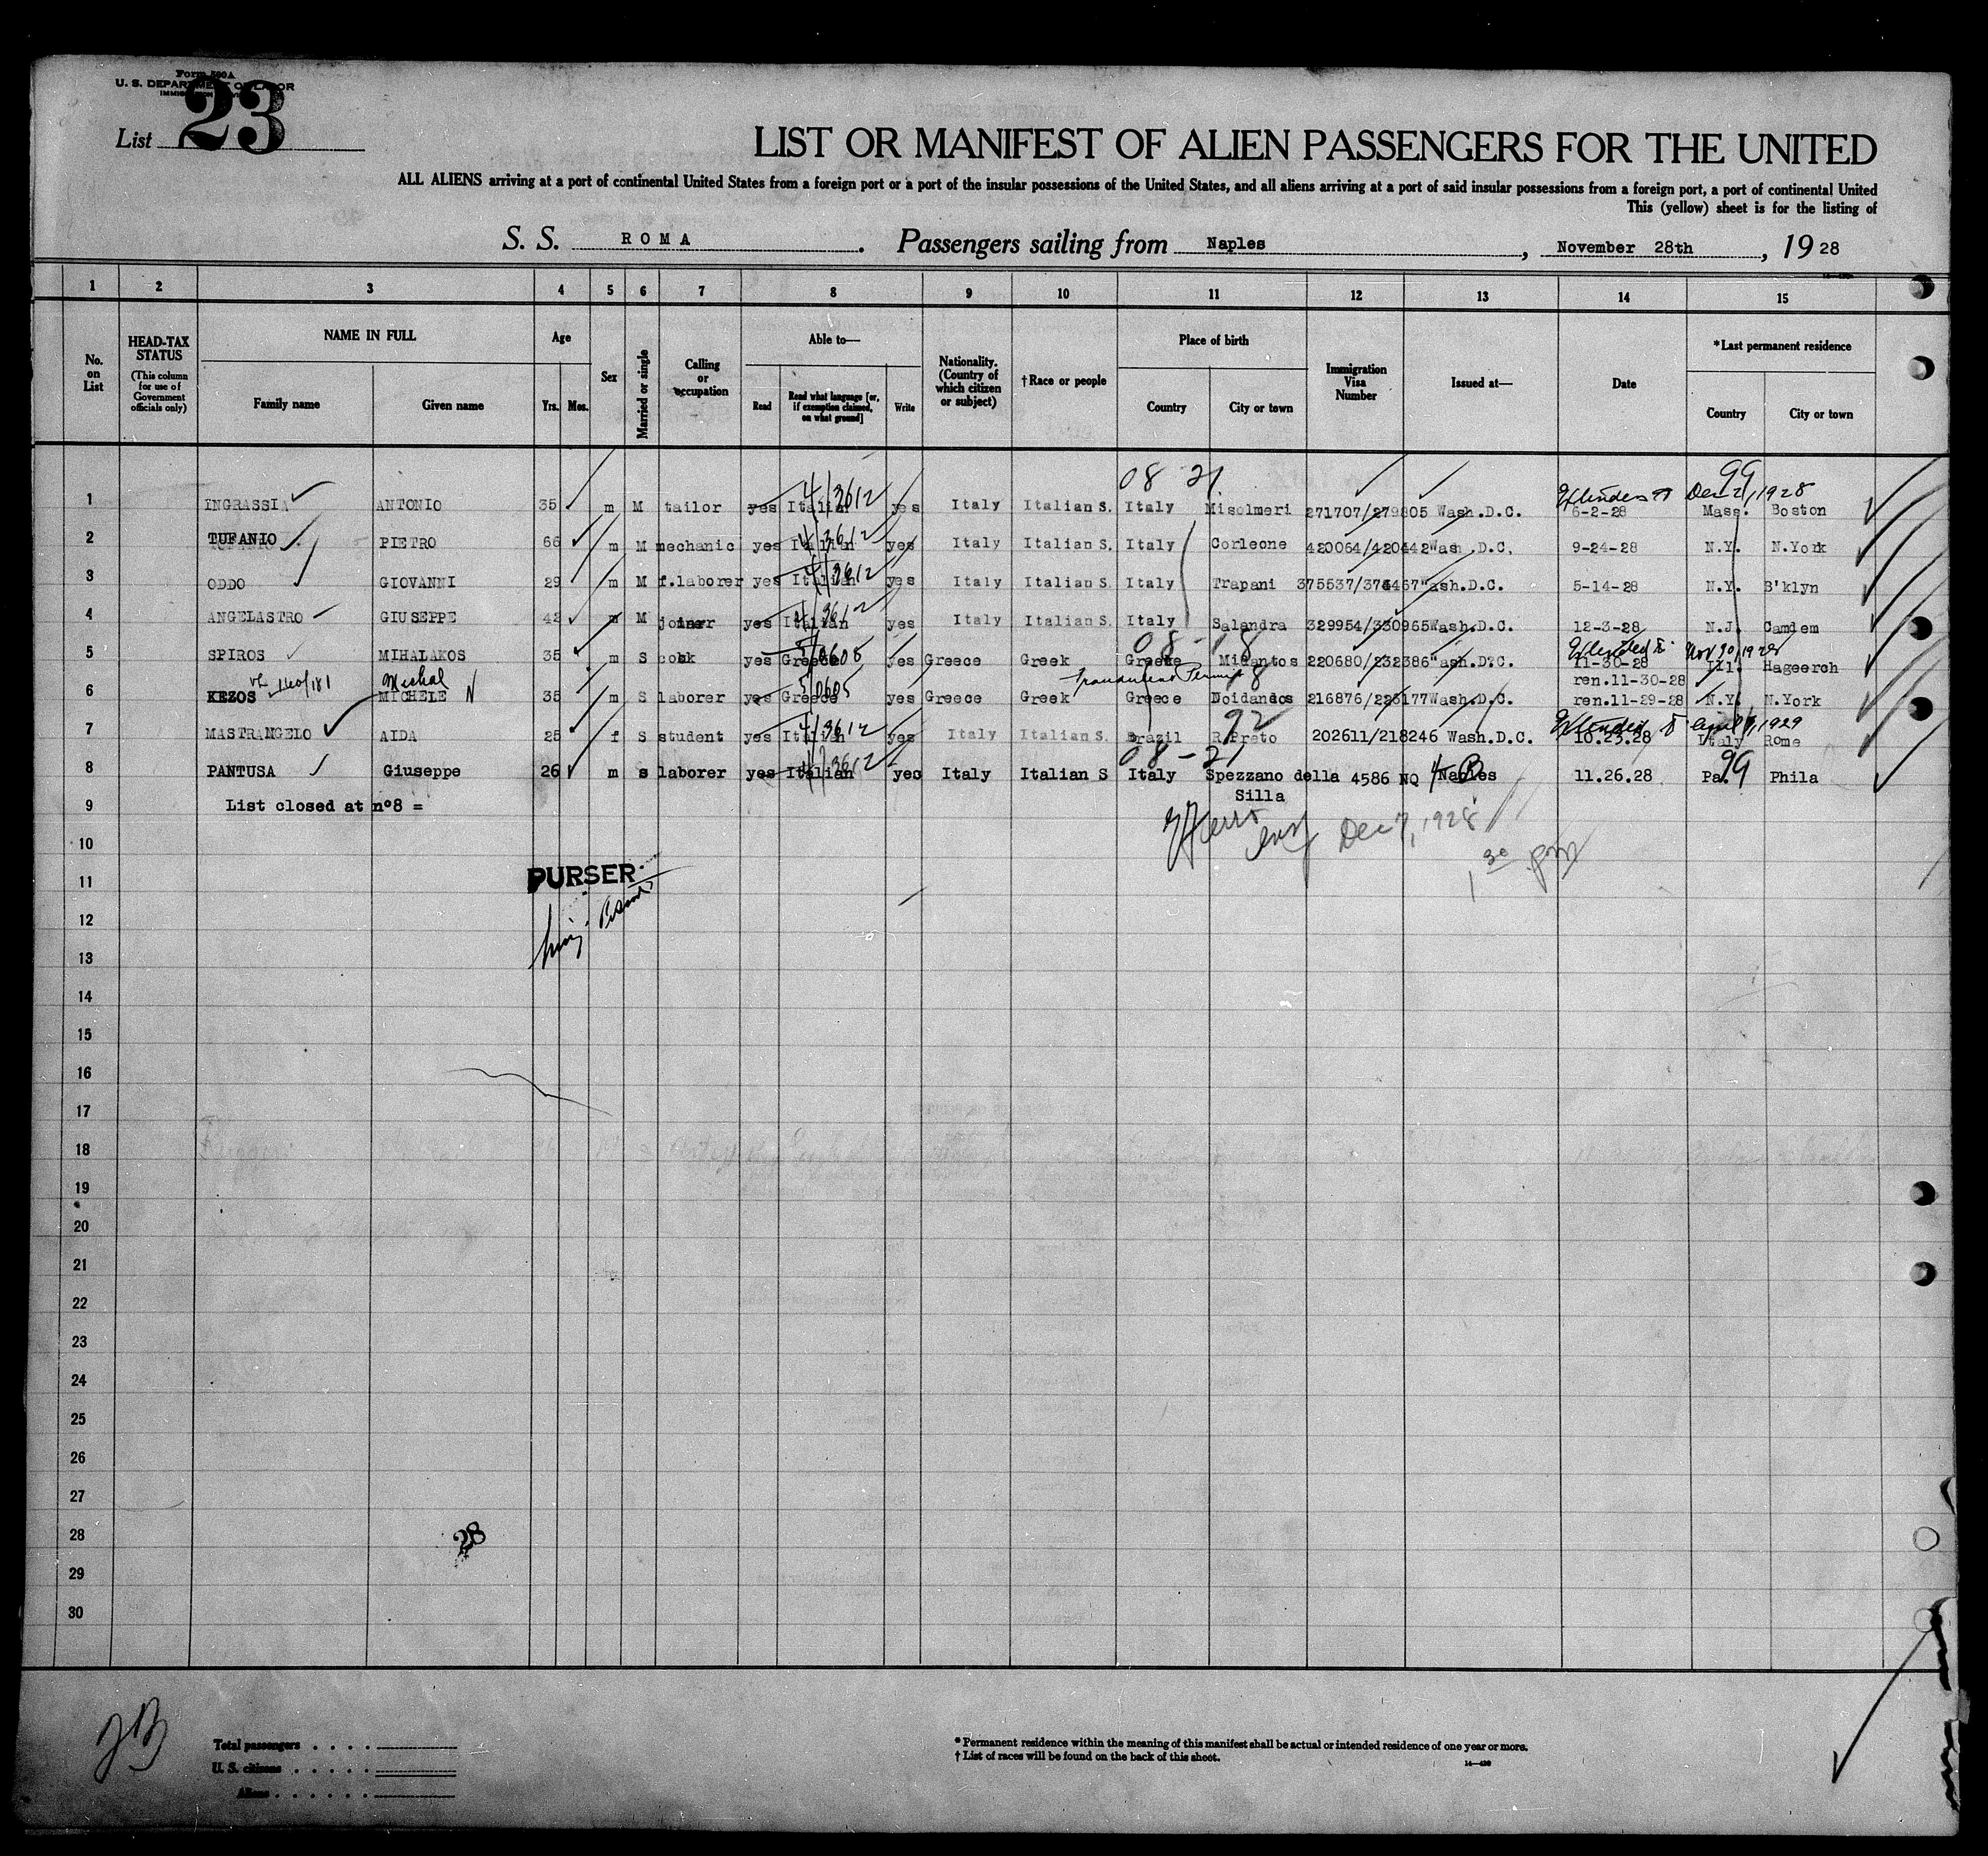 Form 500A
U. S. DEPARTMENT OF LABOR
List 23
LIST OR MANIFEST OF ALIEN PASSENGERS FOR THE UNITED
ALL ALIENS arriving at a port of continental United States from a foreign port or a port of the insular possessions of the United States, and all aliens arriving at a port of said insular possessions from a foreign port, a port of continental United
This (yellow) sheet is for the listing of
S. S. ROMA. Passengers sailing from Naples, November 28th, 19 28
1 2 3 4 5 6 7 8 9 10 11 12 13 14 15
No. on List
HEAD-TAX STATUS
(This column for use of Government officials only)
NAME IN FULL
Family name
Given name
Age
Yrs. Mos.
Sex
Married or single
Calling or occupation
Able to—
Read
Read what language [or, if exemption claimed, on what ground]
Write
Nationality. (Country of which citizen or subject)
†Race or people
Place of birth
Country
City or town
Immigration Visa Number
Issued at—
Date
*Last permanent residence
Country
City or town
08 21 99
Dec 2, 1928
1 INGRASSIA ANTONIO 35 m M tailor yes Italian 4/3612 yes Italy Italian S. Italy Misolmeri 271707/279805 Wash.D.C. 6-2-28 Mass. Boston
2 TUFANIO PIETRO 66 m M mechanic yes Italian 4/3612 yes Italy Italian S. Italy Corleone 420064/420442 Wash.D.C. 9-24-28 N.Y. N.York
3 ODDO GIOVANNI 29 m M f.laborer yes Italian 4/3612 yes Italy Italian S. Italy Trapani ash.D.C. 5-14-28 N.Y. B'klyn
4 ANGELASTRO GIUSEPPE 42 m M joiner yes Italian 4/3612 yes Italy Italian S. Italy Salandra 329954/330965 Wash.D.C. 12-3-28 N.J. Camdem
08-18 Extended to Nov 30/1928
5 SPIROS MIHALAKOS 35 m S cook yes Greece 5/0605 yes Greece Greek Greece 220680/232386 "ash.D.C. 11-30-28 Ill. Hageerch
ren.11-30-28
Michal Fraudulent Permit
6 KEZOS MICHELE N 35 m S laborer yes Greece 5/0605 yes Greece Greek Greece 216876/223177 Wash.D.C. ren.11-29-28 N.Y. N.York
92 Extended to April 9, 1929
7 MASTRANGELO AIDA 25 f S student yes Italian 4/3612 yes Italy Italian S. Brazil R.Preto 202611/218246 Wash.D.C. 10.23.28 Italy Rome
08-21 99
8 PANTUSA Giuseppe 26 m s laborer yes Italian 4/3612 yes Italy Italian S Italy Spezzano della 4586 NQ 4 B Naples 11.26.28 Pa. Phila
Silla
9 List closed at nº8 =
Dec 7, 1928
10
1 30 pm
11
PURSER
12
13
14
15
16
17
18
19
20
21
22
23
24
25
26
27
28
28
29
30
Total passengers . . . .
U. S. citizens . . . . .
Aliens . . . . . .
* Permanent residence within the meaning of this manifest shall be actual or intended residence of one year or more.
† List of races will be found on the back of this sheet.